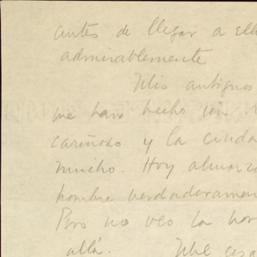 antes de llegar a ell
admirablemente
Mis antiguos
me han hecho un
cariñoso y la ciuda
mucho. Hoy almorz
hombre verdaderamen
Pero no veo la hor
allá. Me